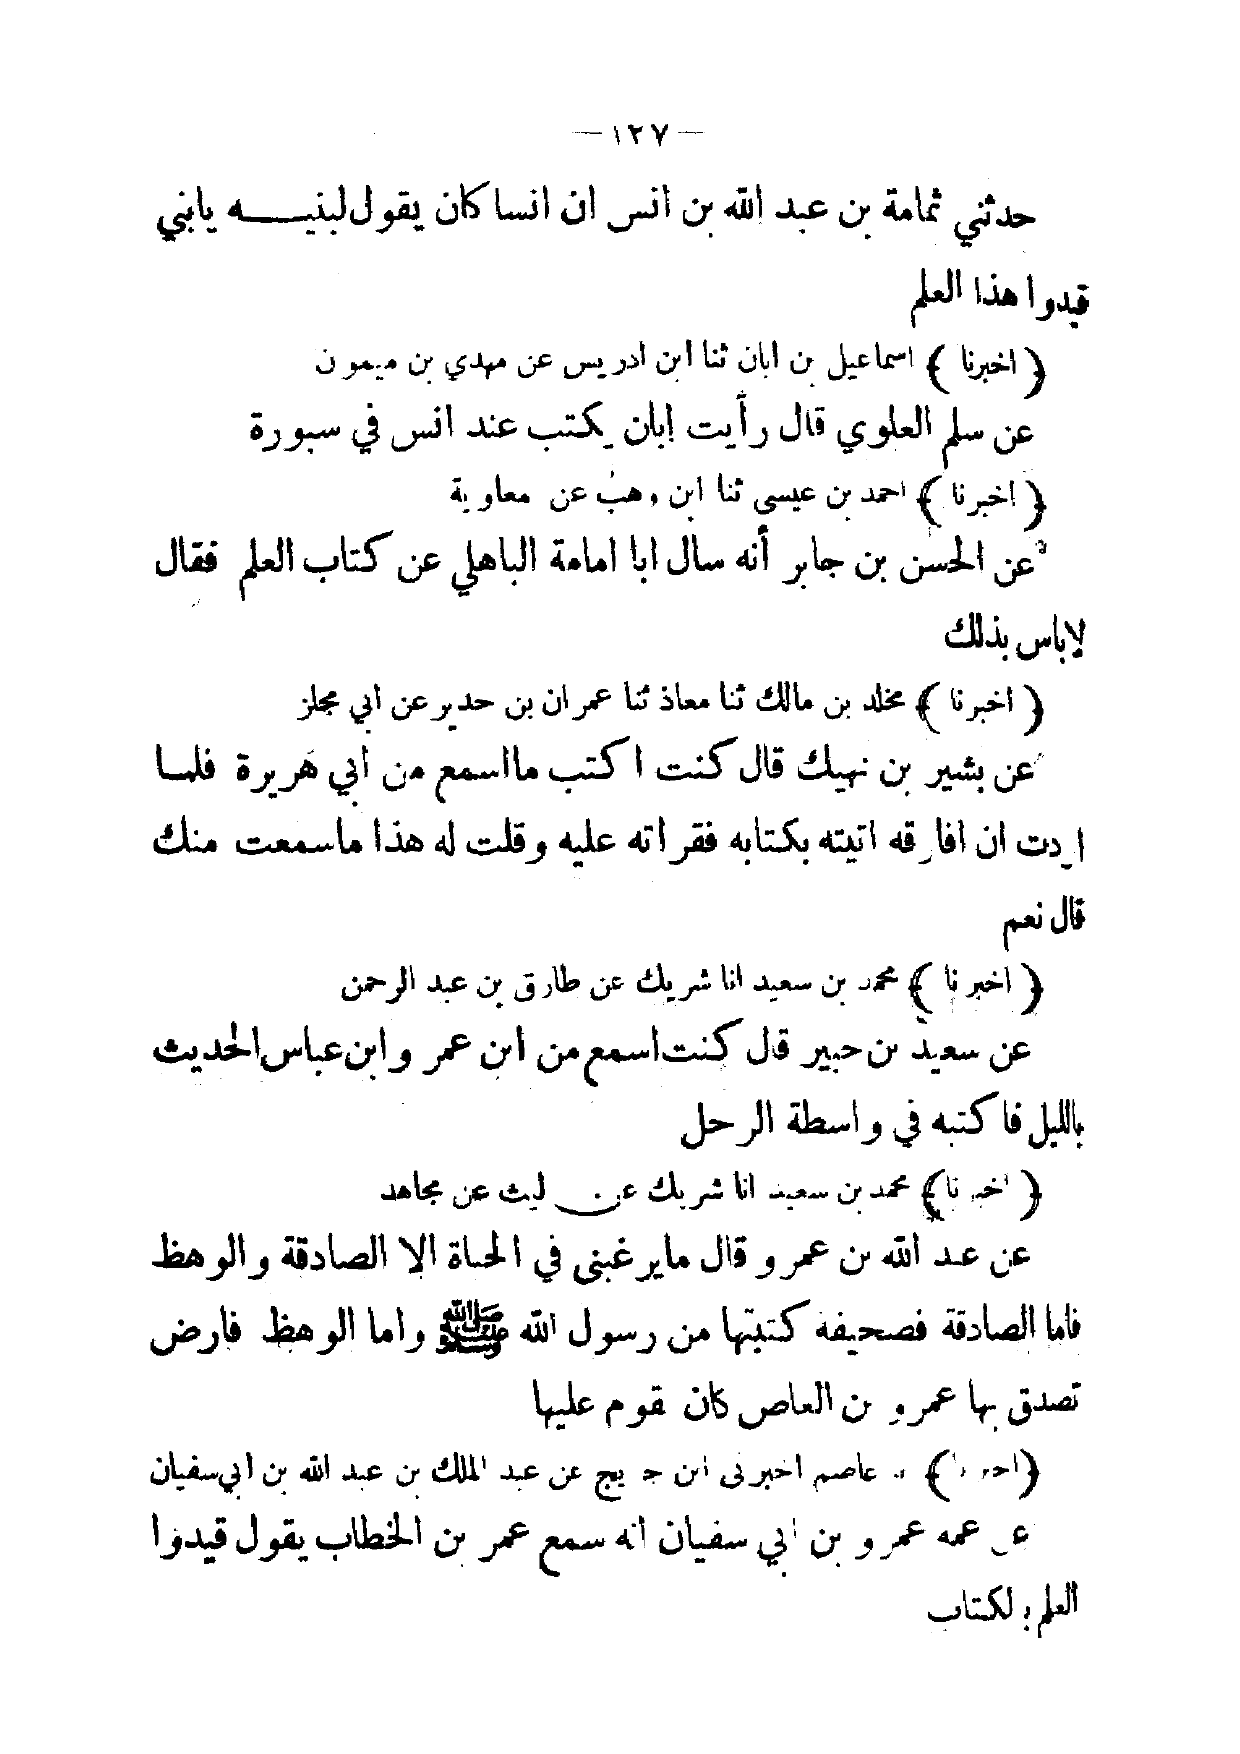 — ١٢٧ —
حدثني ثمامة بن عبد الله بن انس ان انسا كان يقول لبنيــه يابني
قيدوا هذا العلم
﴿ اخبرنا ﴾ اسماعيل بن ابان ثنا ابن ادريس عن مهدي بن ميمون
عن سلم العلوي قال رأيت ابان يكتب عند انس في سبورة
﴿ اخبرنا ﴾ احمد بن عيسى ثنا ابن وهب عن معاوية
عن الحسن بن جابر أنه سال ابا امامة الباهلي عن كتاب العلم فقال
لاباس بذلك
﴿ اخبرنا ﴾ مخلد بن مالك ثنا معاذ ثنا عمران بن حدير عن ابي مجلز
عن بشير بن نهيك قال كنت اكتب مااسمع من ابي هريرة فلمــا
اردت ان افارقه اتيته بكتابه فقراته عليه وقلت له هذا ماسمعت منك
قال نعم
﴿ اخبرنا ﴾ محمد بن سعيد انا شريك عن طارق بن عبد الرحمن
عن سعيد بن جبير قال كنت اسمع من ابن عمر وابن عباس الحديث
بالليل فاكتبه في واسطة الرحل
﴿ اخبرنا ﴾ محمد بن سعيد انا شريك عن ليث عن مجاهد
عن عبد الله بن عمرو قال مايرغبني في الحياة الا الصادقة والوهظ
فاما الصادقة فصحيفة كتبتها من رسول الله ﷺ واما الوهظ فارض
تصدق بها عمرو بن العاص كان يقوم عليها
﴿ اخبرنا ﴾ عاصم اخبرني ابن جريج عن عبد الملك بن عبد الله بن ابي سفيان
عن عمه عمرو بن ابي سفيان انه سمع عمر بن الخطاب يقول قيدوا
العلم بالكتاب